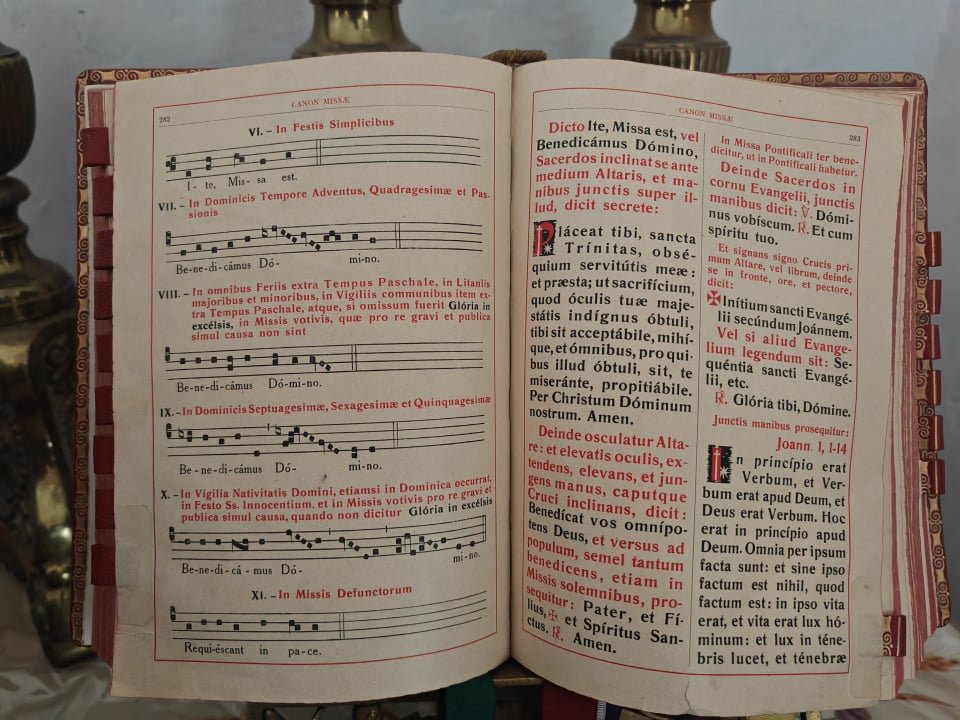 CANON MISSÆ
282
VI. – In Festis Simplicibus
I - te, Mis- sa est.
VII. – In Dominicis Tempore Adventus, Quadragesimæ et Pas-
sionis
Be-ne-di-cámus Dó- mi-no.
VIII. – In omnibus Feriis extra Tempus Paschale, in Litaniis
majoribus et minoribus, in Vigiliis communibus item ex-
tra Tempus Paschale, atque, si omissum fuerit Glória in
excélsis, in Missis votivis, quæ pro re gravi et publica
simul causa non sint
Be-ne-di-cámus Dó-mi-no.
IX. – In Dominicis Septuagesimæ, Sexagesimæ et Quinquagesimæ
Be - ne-di-cámus Dó- mi-no.
X. – In Vigilia Nativitatis Domini, etiamsi in Dominica occurrat,
in Festo Ss. Innocentium, et in Missis votivis pro re gravi et
publica simul causa, quando non dicitur Glória in excélsis
Be-ne-di-cá - mus Dó- mi-no.
XI. – In Missis Defunctorum
Requi-éscant in pa-ce.
CANON MISSÆ
283
Dicto Ite, Missa est, vel
Benedicámus Dómino,
Sacerdos inclinat se ante
medium Altaris, et ma-
nibus junctis super il-
lud, dicit secrete:
Pláceat tibi, sancta
Trínitas, obsé-
quium servitútis meæ:
et præsta; ut sacrifícium,
quod óculis tuæ maje-
státis indígnus óbtuli,
tibi sit acceptábile, mihí-
que, et ómnibus, pro qui-
bus illud óbtuli, sit, te
miseránte, propitiábile.
Per Christum Dóminum
nostrum. Amen.
Deinde osculatur Alta-
re: et elevatis oculis, ex-
tendens, elevans, et jun-
gens manus, caputque
Cruci inclinans, dicit:
Benedícat vos omnípo-
tens Deus, et versus ad
populum, semel tantum
benedicens, etiam in
Missis solemnibus, pro-
sequitur: Pater, et Fí-
lius, ✠ et Spíritus San-
ctus. ℟. Amen.
In Missa Pontificali ter bene-
dicitur, ut in Pontificali habetur.
Deinde Sacerdos in
cornu Evangelii, junctis
manibus dicit: ℣. Dómi-
nus vobíscum. ℟. Et cum
spíritu tuo.
Et signans signo Crucis pri-
mum Altare, vel librum, deinde
se in fronte, ore, et pectore,
dicit:
✠ Inítium sancti Evangé-
lii secúndum Joánnem.
Vel si aliud Evange-
lium legendum sit: Se-
quéntia sancti Evangé-
lii, etc.
℟. Glória tibi, Dómine.
Junctis manibus prosequitur:
Joann. 1, 1-14
In princípio erat
Verbum, et Ver-
bum erat apud Deum, et
Deus erat Verbum. Hoc
erat in princípio apud
Deum. Omnia per ipsum
facta sunt: et sine ipso
factum est nihil, quod
factum est: in ipso vita
erat, et vita erat lux hó-
minum: et lux in téne-
bris lucet, et ténebræ